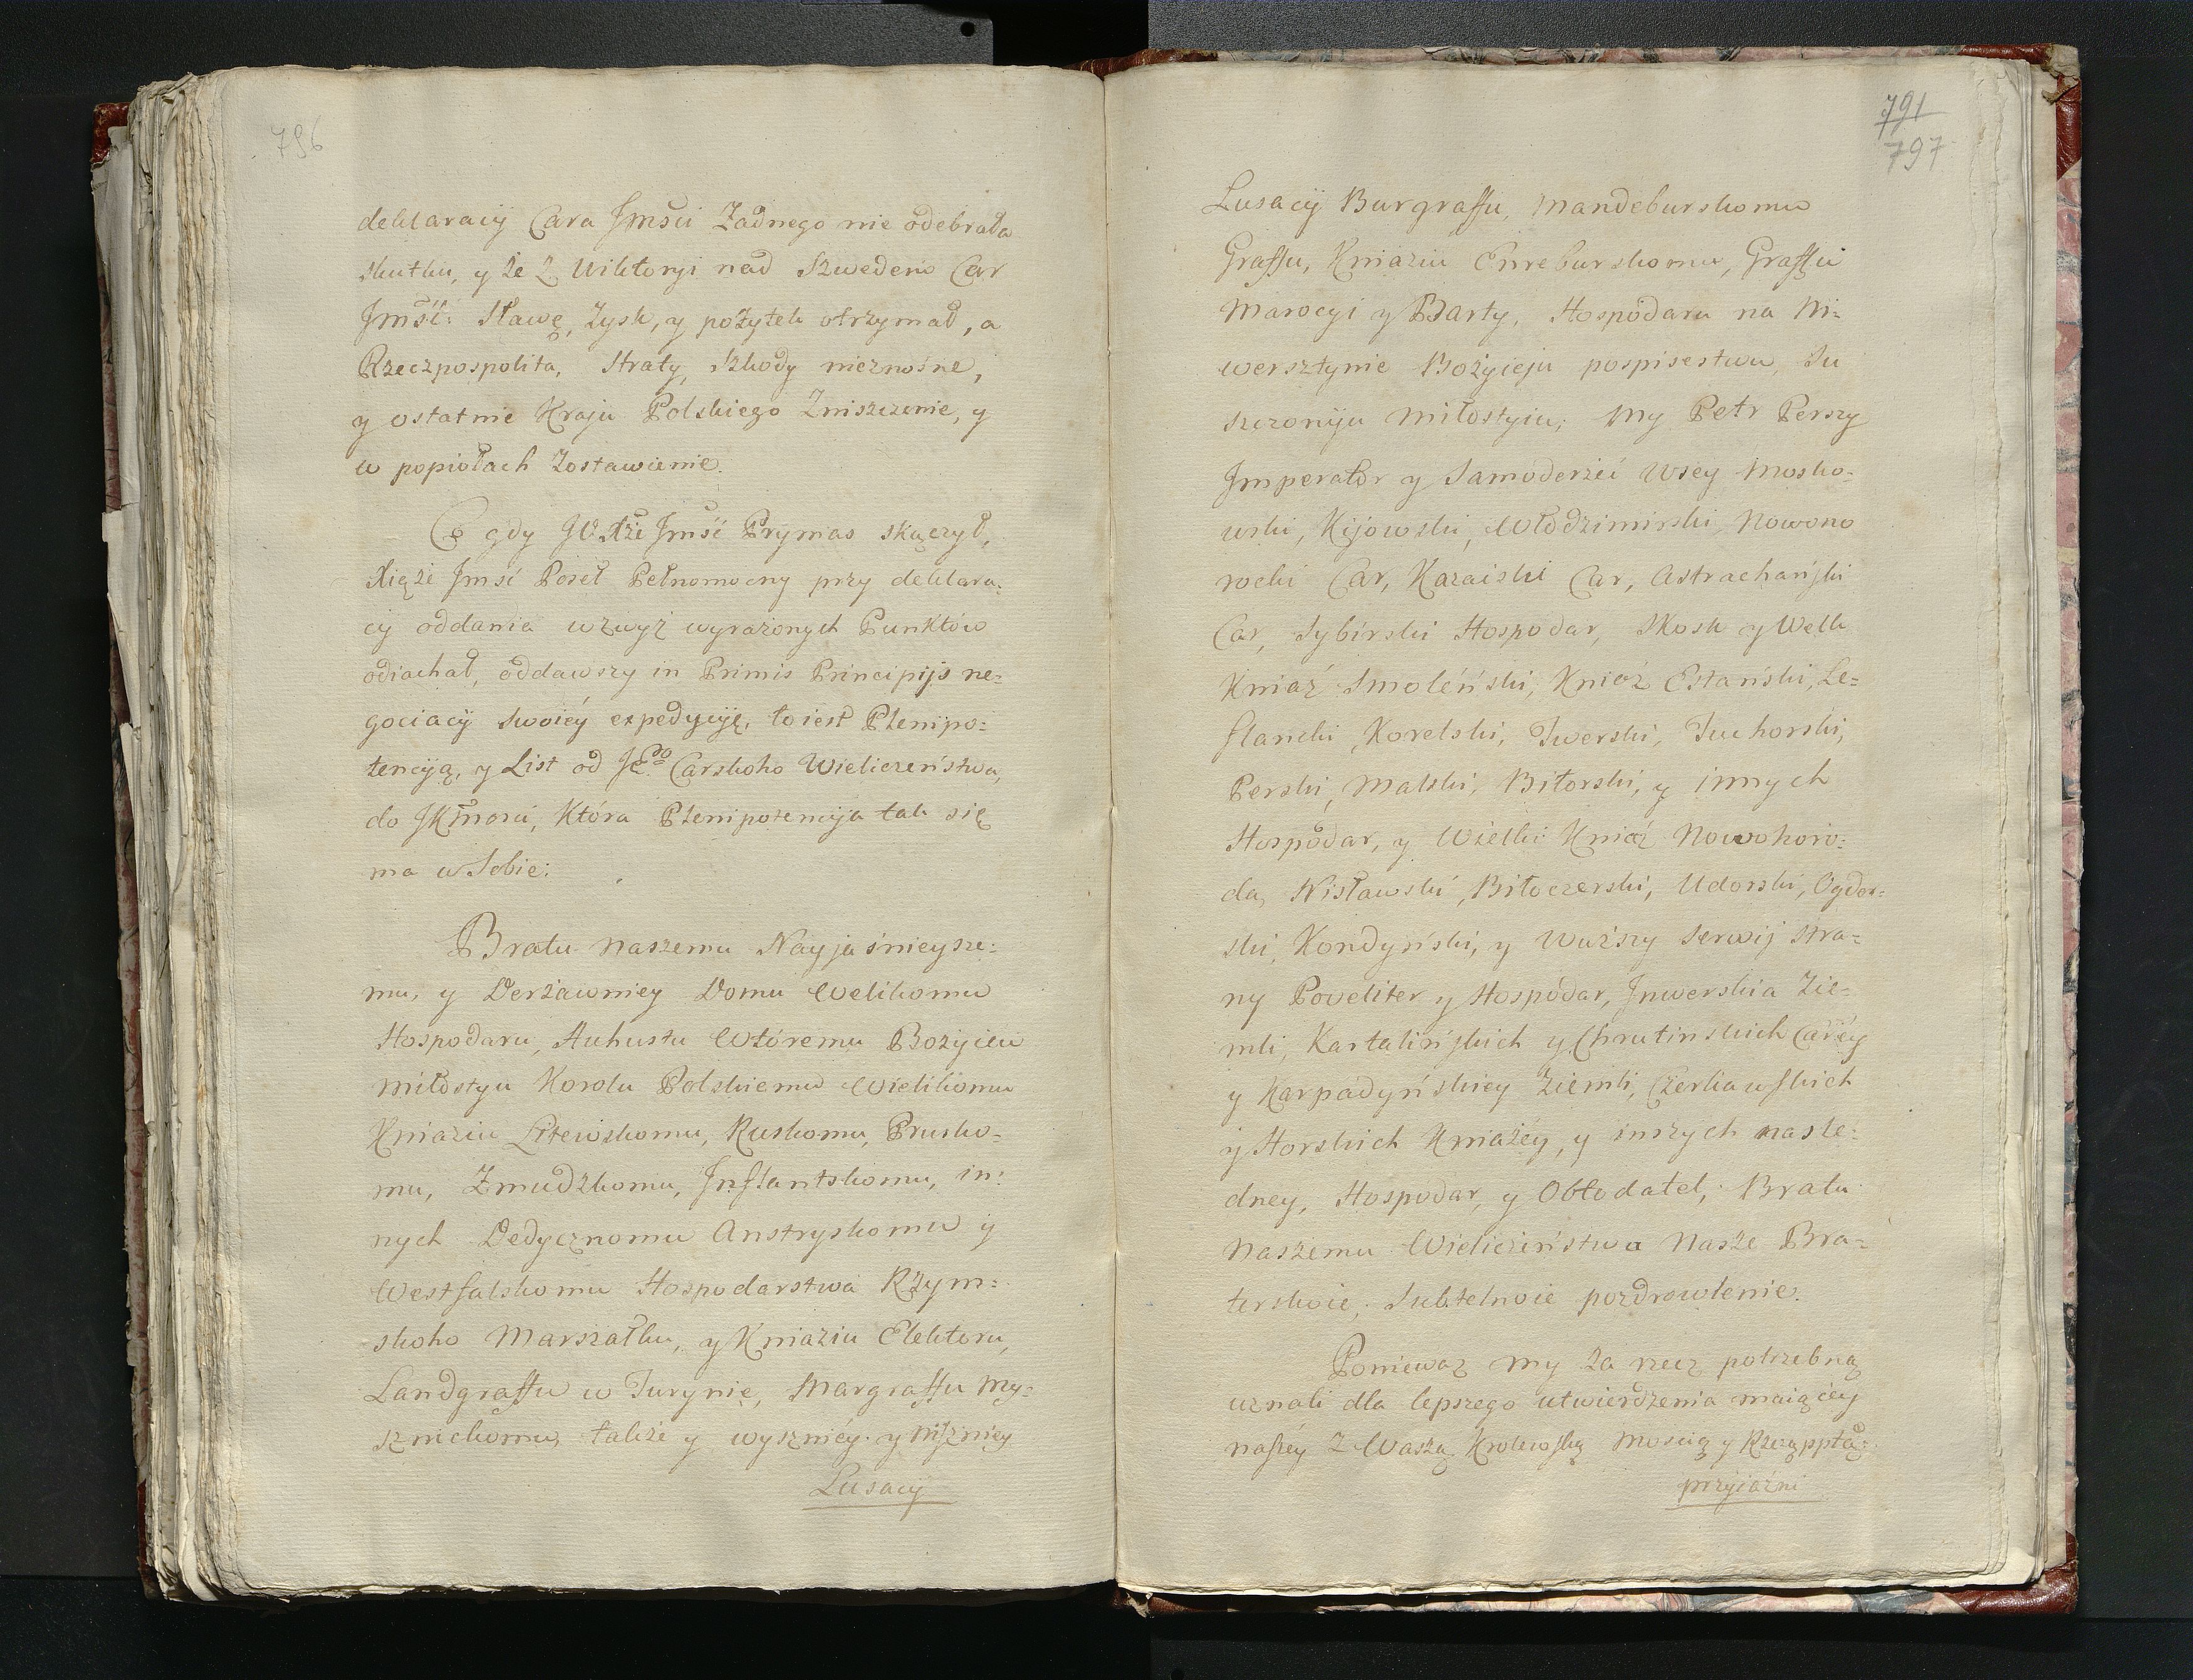 796
deklaracij Cara Jmści Żadnego nie odebrała
skutku, y że z Wiktoryi nad Szwedem Car
Jmść: Sławę, Zysk, y pożytek otrzymał, a
Rzeczpospolita, Straty, Szkody nieznośne,
y ostatnie Kraju Polskiego Zniszczenie, y
w popiołach Zostawienie.
Co gdy JW Xże Jmść Prymas skączył,
Xiąże Jmść Poseł Pełnomocny przy deklara:
cij oddania wzwyż wyrażonych Punktów
odiachał, oddawszy in Primis Principijs ne=
gociacij Swoiéy expedycyję, to iest Plenipo=
tencyją, y List od Jego Carskoho Wieliczeństwa,
do JKmości, Która Plenipotencyja tak się
ma w Sobie:
Bratu naszemu Nayjaśnieysze:
mu, y Derżawniey Domu Welikomu
Hospodaru, Auhustu Wtóremu Bożyieu
miłostyu Korolu Polskiemu Wielikomu
Kniaziu Litewskomu, Ruskomu, Prusko=
mu, Zmudzkomu, Inflantskomu, in:
nych Dedycznomu Anstryskomu ij
Westfalskomu Hospodarstwa Rzym=
skoho Marszałku, y Kniaziu Elektoru,
Landgraffu w Turynie, Margraffu My=
sznickomu, także y wyszniéy y niszniey
Lusacij
791
797
Lusacij Burgraffu, Mandeburskomu
Graffu, Kniaziu Enreburskomu, Graffu
Marocyi y Barty, Hospodaru na Ni=
wersztynie Bożyieju pospisestwu, Su
szczoniju miłostyiu; My Petr Perszy
Jmperator y Samoderżeć Wsey Mosko=
wski, Kijowski, Włodzimirski, Nowono
rocki Car, Kazaiski Car, Astrachański
Car, Sybirski Hospodar, Skosk y Welk
Kniaź Smoleński, Kniaź Estański, Le=
flancki, Korelski, Twerski, Juchorski,
Perski, Malski, Biłorski, y innych
Hospodar, y Wielki Kniaź Nowohoro:
da, Nisławski, Biłoczerski, Udorski, Ogdor=
ski, Kondyński, y Wuższy Serwij stra=
ny Poveliter y Hospodar, Jnwerskia Zie=
mli, Kartalińskich y Chrutinskich Caréy
y Karpadyńskiey Ziemli, Czerkawskich
ij Horskich Kniażéy, y inszych nasle:
dney, Hospodar, y Obłodatel, Bratu
Naszemu Wieliczeństwa Nasze Bra=
terskoie, Subtelnoie pozdrowlenie.
Poniewaz my za rzecz potrzebną
uznali dla lepszego utwierdzenia maiącéy
naszéy z Waszą Krolewską Moscią y Rzecząpptą
przyiaźni